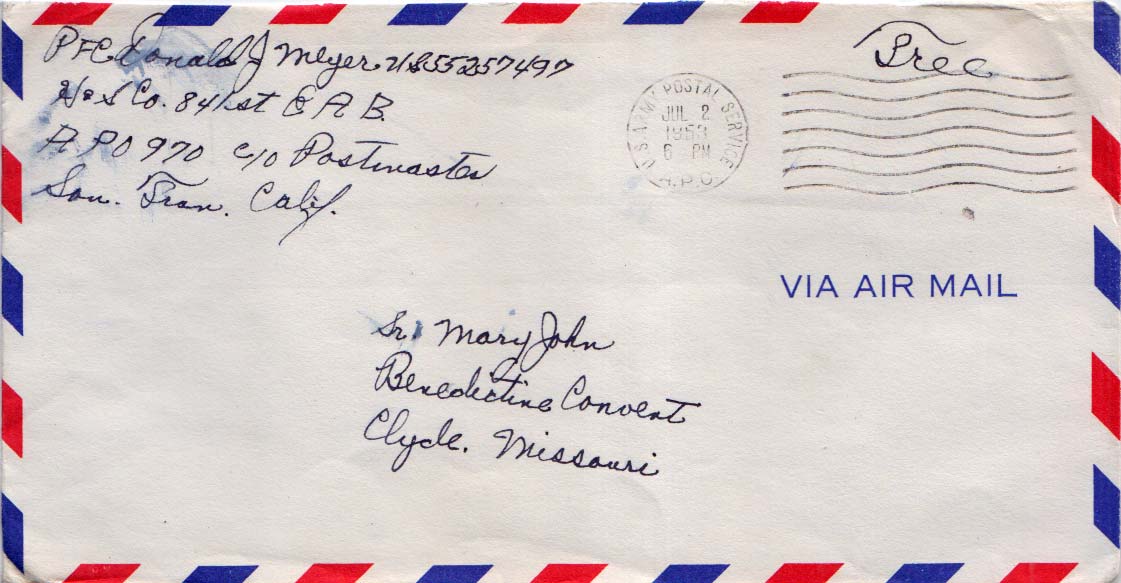 PFC Donald J Meyer US55257497
H & S Co. 841st E A B.
A P O 970 c/o Postmaster
San. Fran. Calif.
Free
U.S. ARMY POSTAL SERVICE
JUL 2
1953
6 PM
A.P.O.
VIA AIR MAIL
Sr. Mary John
Benedictine Convent
Clyde. Missouri